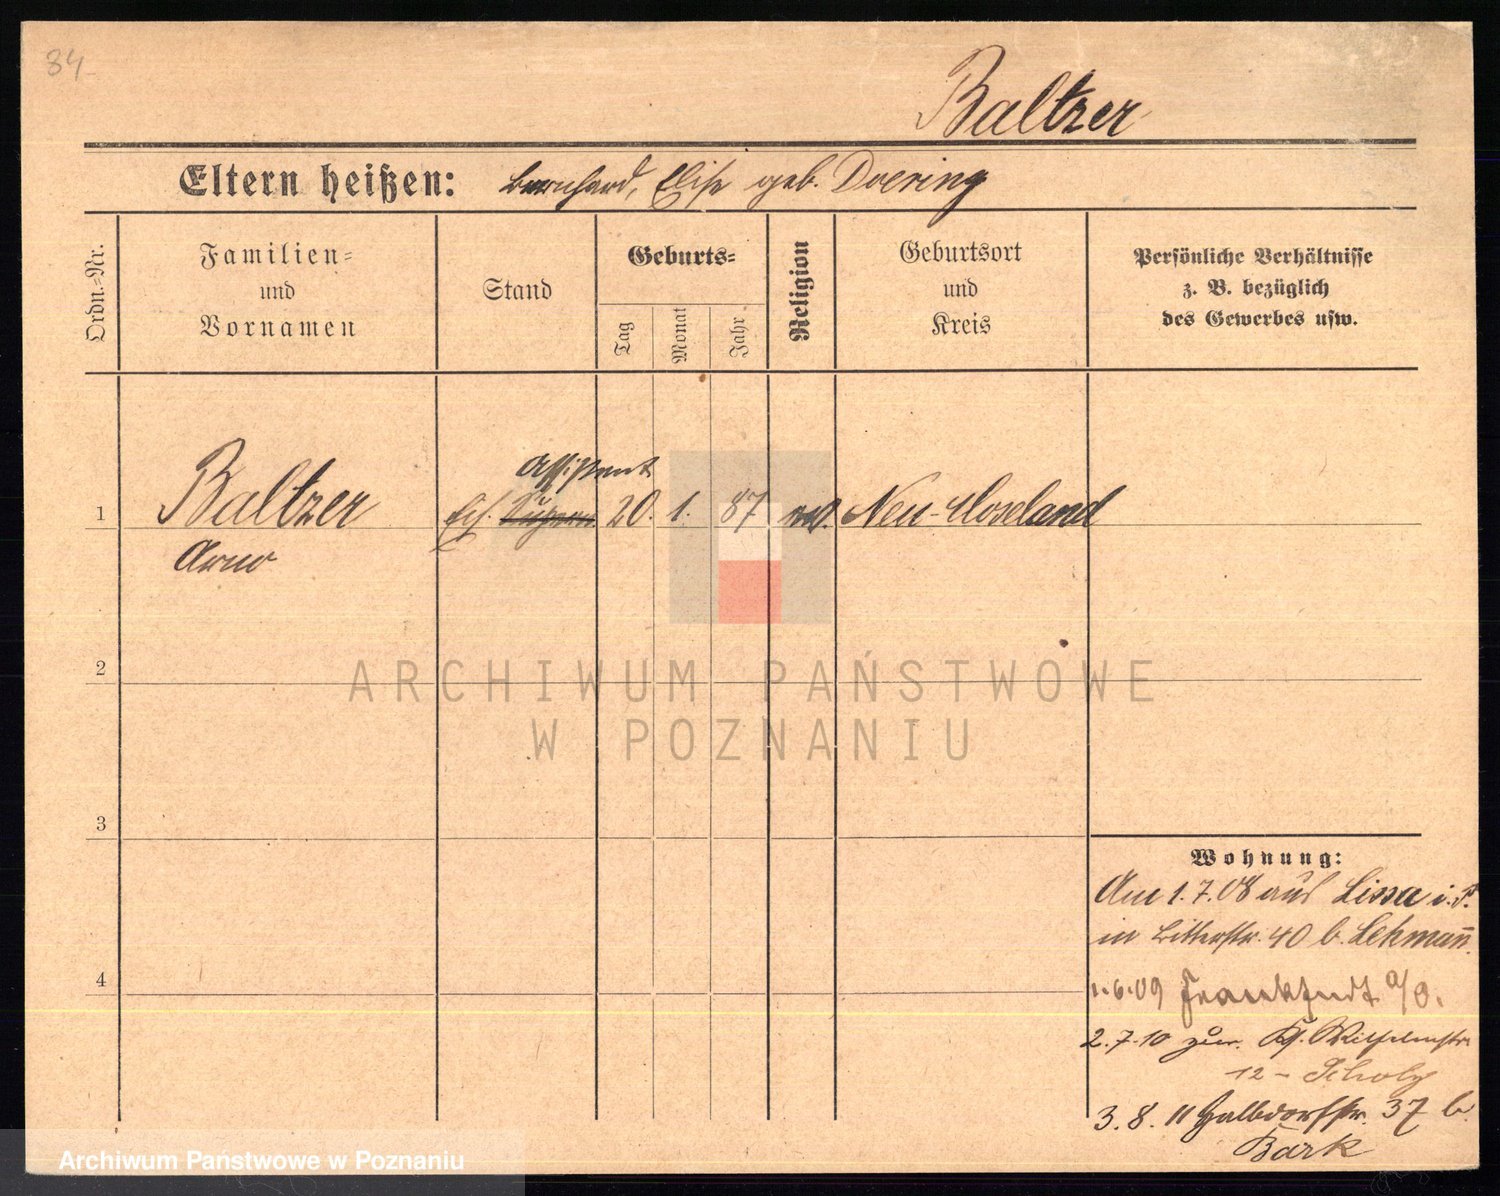 84
Baltzer
Eltern heißen: Bernhard, Elise geb. Doering
Ordn.-Nr.
Familien-
und
Vornamen
Stand
Geburts-
Tag
Monat
Jahr
Religion
Geburtsort
und
Kreis
Persönliche Verhältnisse
z. B. bezüglich
des Gewerbes usw.
Assistent
1 Baltzer 20. 1. 87 Neu-
Arno
2
ARCHIWUM PAŃSTWOWE
W POZNANIU
3
Wohnung:
Am 1.7.08 aus Lissa i. P.
in Ritterstr. 40 b. Lehmann
4
1.6.09 Frankfurt a/O.
2.7.10 zur. Kl. Wilhelmstr.
12 - Scholz
3.8.11 Halbdorfstr. 37 b.
Bark
Archiwum Państwowe w Poznaniu